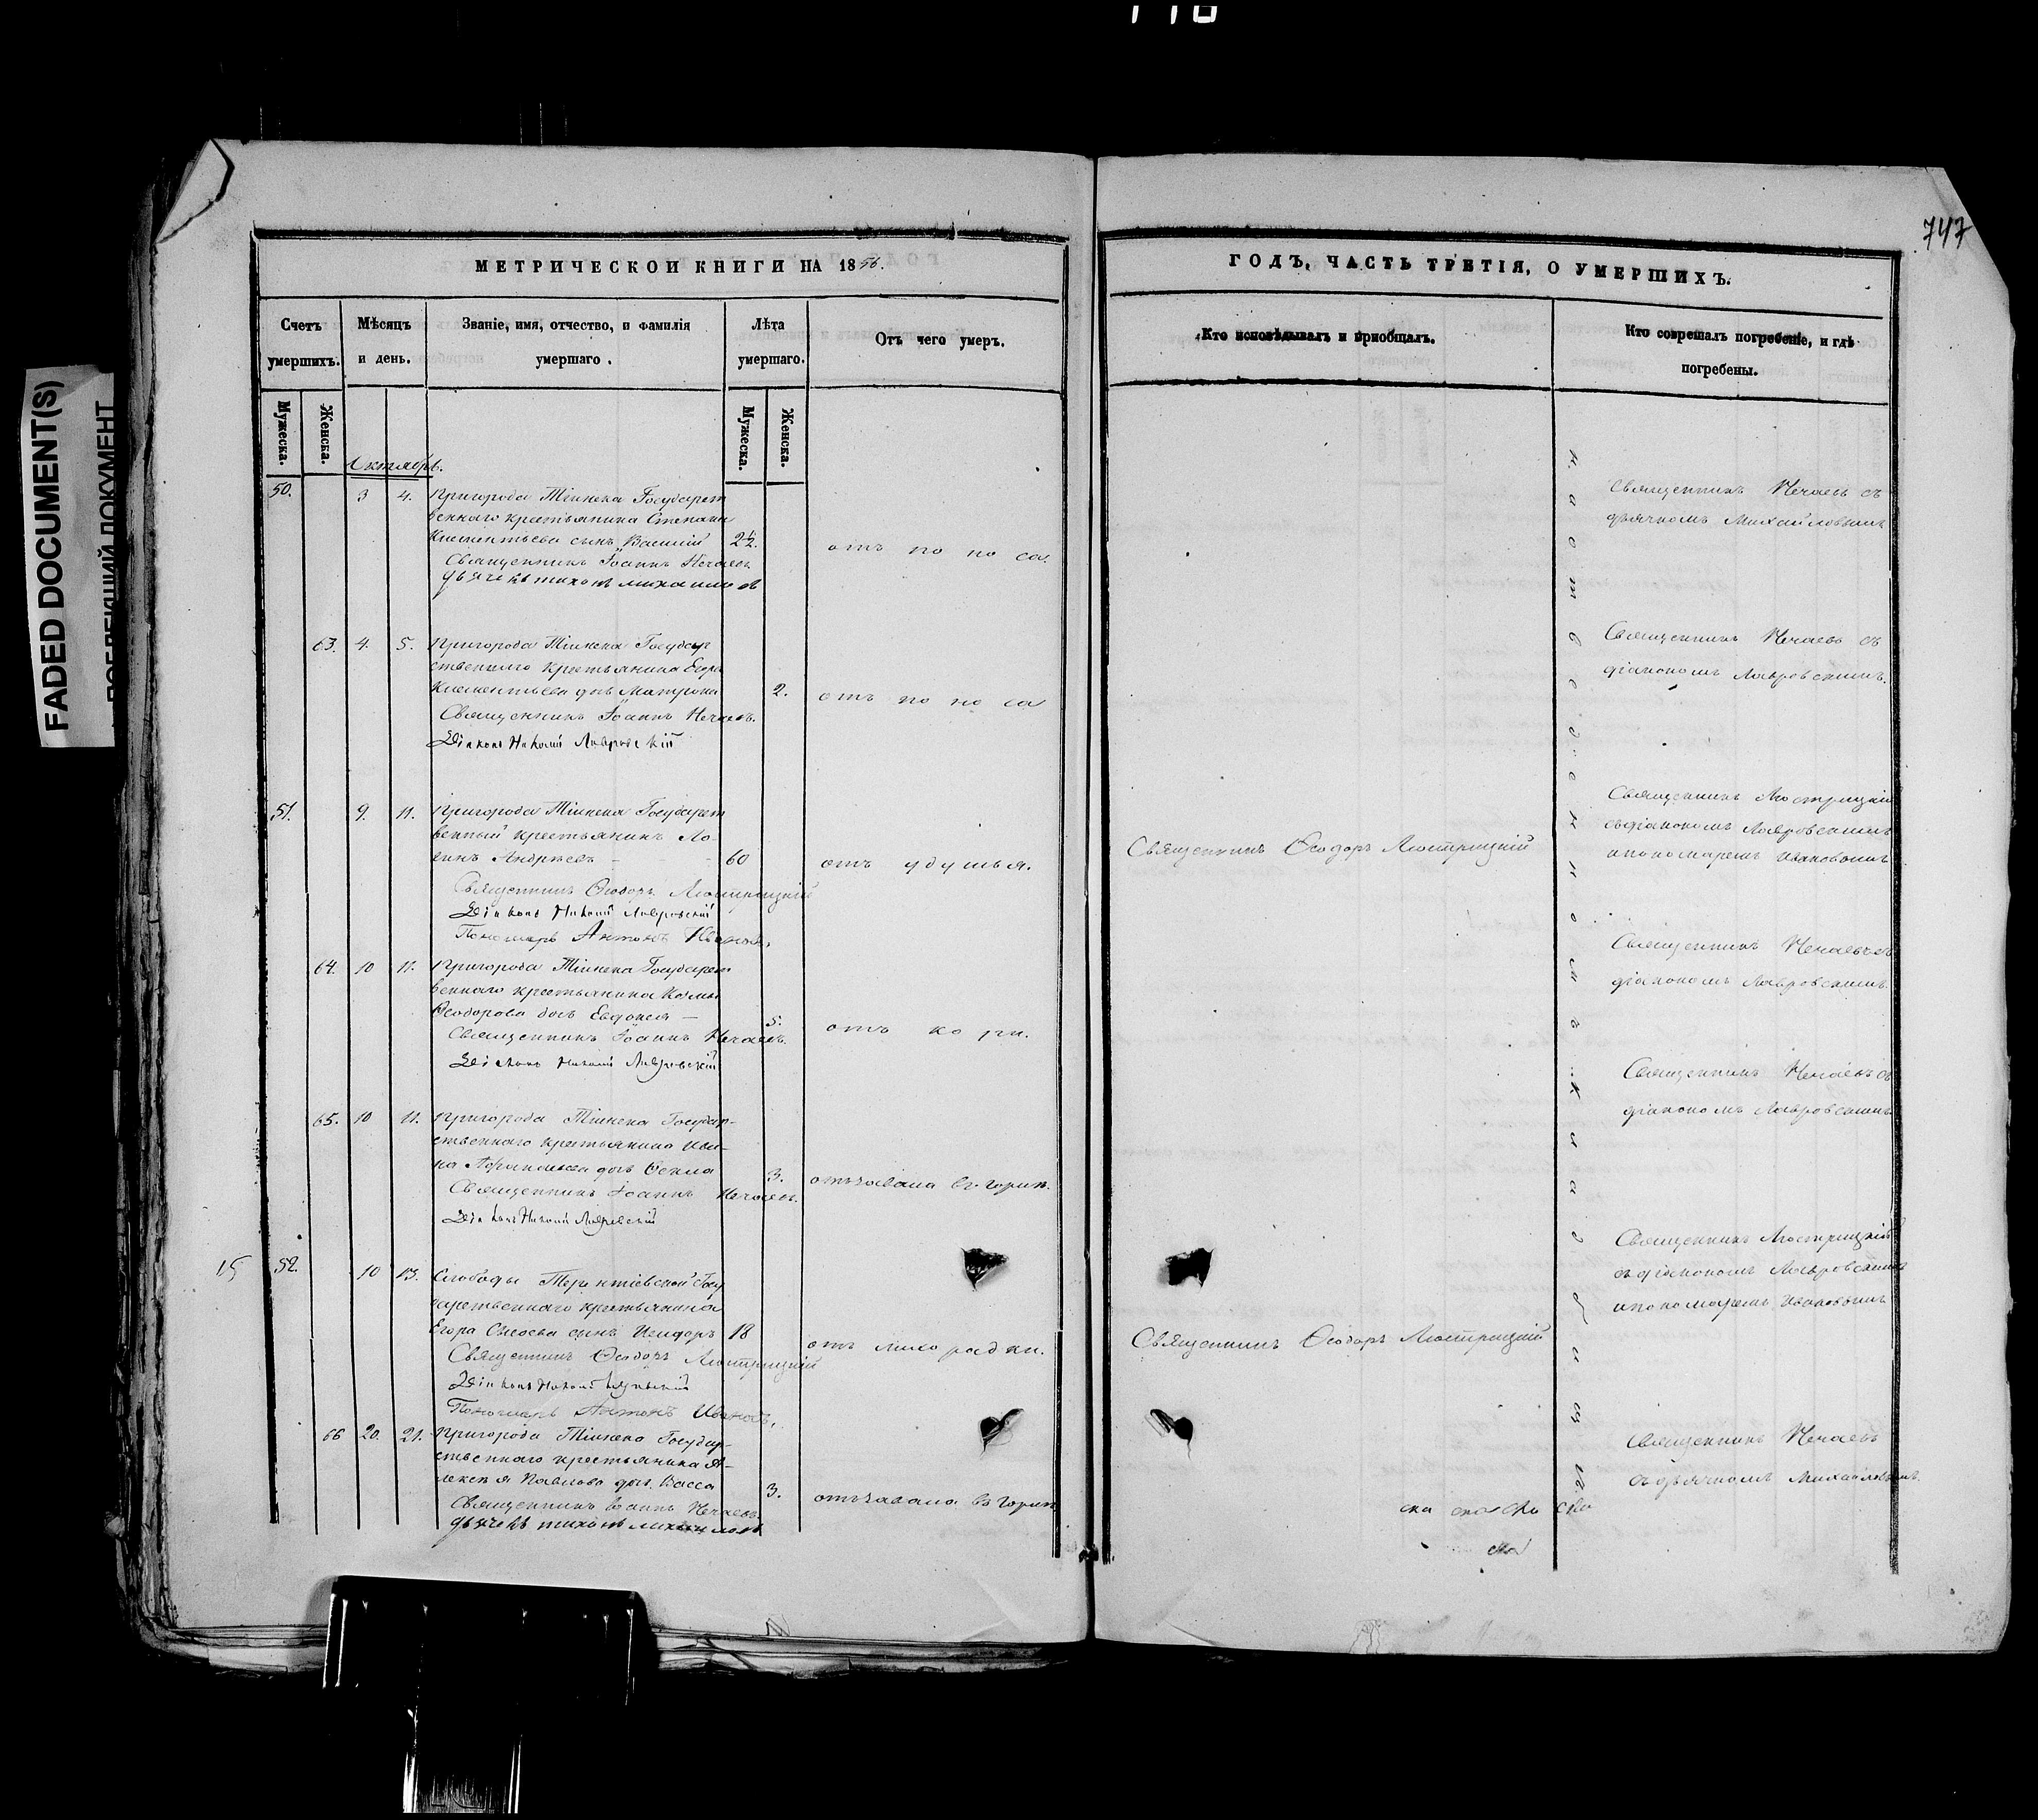 747
FADED DOCUMENT(S)
МЕТРИЧЕСКОЙ КНИГИ НА 1856.
ГОДЪ, ЧАСТЬ ТРЕТІЯ, О УМЕРШИХЪ.
Счетъ умершихъ.
Мѣсяцъ и день.
Званіе, имя, отчество, и фамилія умершаго.
Лѣта умершаго.
Отъ чего умеръ.
Кто исповѣдывалъ и пріобщалъ.
Кто соврешалъ погребеніе, и гдѣ погребены.
Мужеска.
Женска.
Мужеска.
Женска.
Октябрь.
50. 3 4. Пригорода Тіинска Государст
веннаго крестьянина Степана
Климентьева сынъ Василій
Священникъ Іоаннъ Нечаевъ
дьячекъ тихонъ михаиловъ
отъ поноса.
Священникъ Нечаевъ съ
дьячкомъ Михайловымъ
63. 4. 5. Пригорода Тіинска Государ
ственнаго крестьянина Егора
Климентьева дчь Матрона 2. отъ поноса
Священникъ Іоаннъ Нечаевъ.
Діаконъ Николай Лавровскій
Священникъ Нечаевъ съ
діакономъ Лавровскимъ.
51. 9. 11. Пригорода Тіинска Государст
венный крестьянинъ Ло-
гинъ Андреевъ - 60 отъ удушья.
Священникъ Ѳеодоръ Люстрицкій
Діаконъ Николай Лавровскій
Пономарь Антонъ Ивановъ.
Священникъ Ѳеодоръ Люстрицкій
Священникъ Люстрицкій
съ діакономъ Лавровскимъ
и пономаремъ Ивановымъ
64. 10 11. Пригорода Тіинска Государст
веннаго крестьянина Козмы
Ѳеодорова дочь Евдокія — 5. отъ кори.
Священникъ Іоаннъ Нечаевъ.
Діаконъ Николай Лавровскій
Священникъ Нечаевъ съ
діакономъ Лавровскимъ
65. 10 11. Пригорода Тіинска Государ-
ственнаго крестьянина Ива-
на Афанасьева дчь Ѳекла 3.
Священникъ Іоаннъ Нечаевъ.
Діаконъ Николай Лавровскій
Священникъ Нечаевъ съ
діакономъ Лавровскимъ
15 52. 10 13. Слободы Терентіевской Госу
дарственнаго крестьянина
Егора Сысоева сынъ Исидоръ 18 отъ лихорадки.
Священникъ Ѳеодоръ Люстрицкій
Діаконъ Николай Лавровскій
Пономарь Антонъ Ивановъ.
Священникъ Ѳеодоръ Люстрицкій
Священникъ Люстрицкій
съ діакономъ Лавровскимъ
и пономаремъ Ивановымъ
66 20. 21. Пригорода Тіинска Государ-
ственнаго крестьянина А-
лексѣя Павлова дчь Васса 3.
Священникъ Іоаннъ Нечаевъ.
дьячекъ тихонъ михаиловъ
Священникъ Нечаевъ
съ дьячкомъ Михайловымъ.
На отведенномъ кладбищѣ